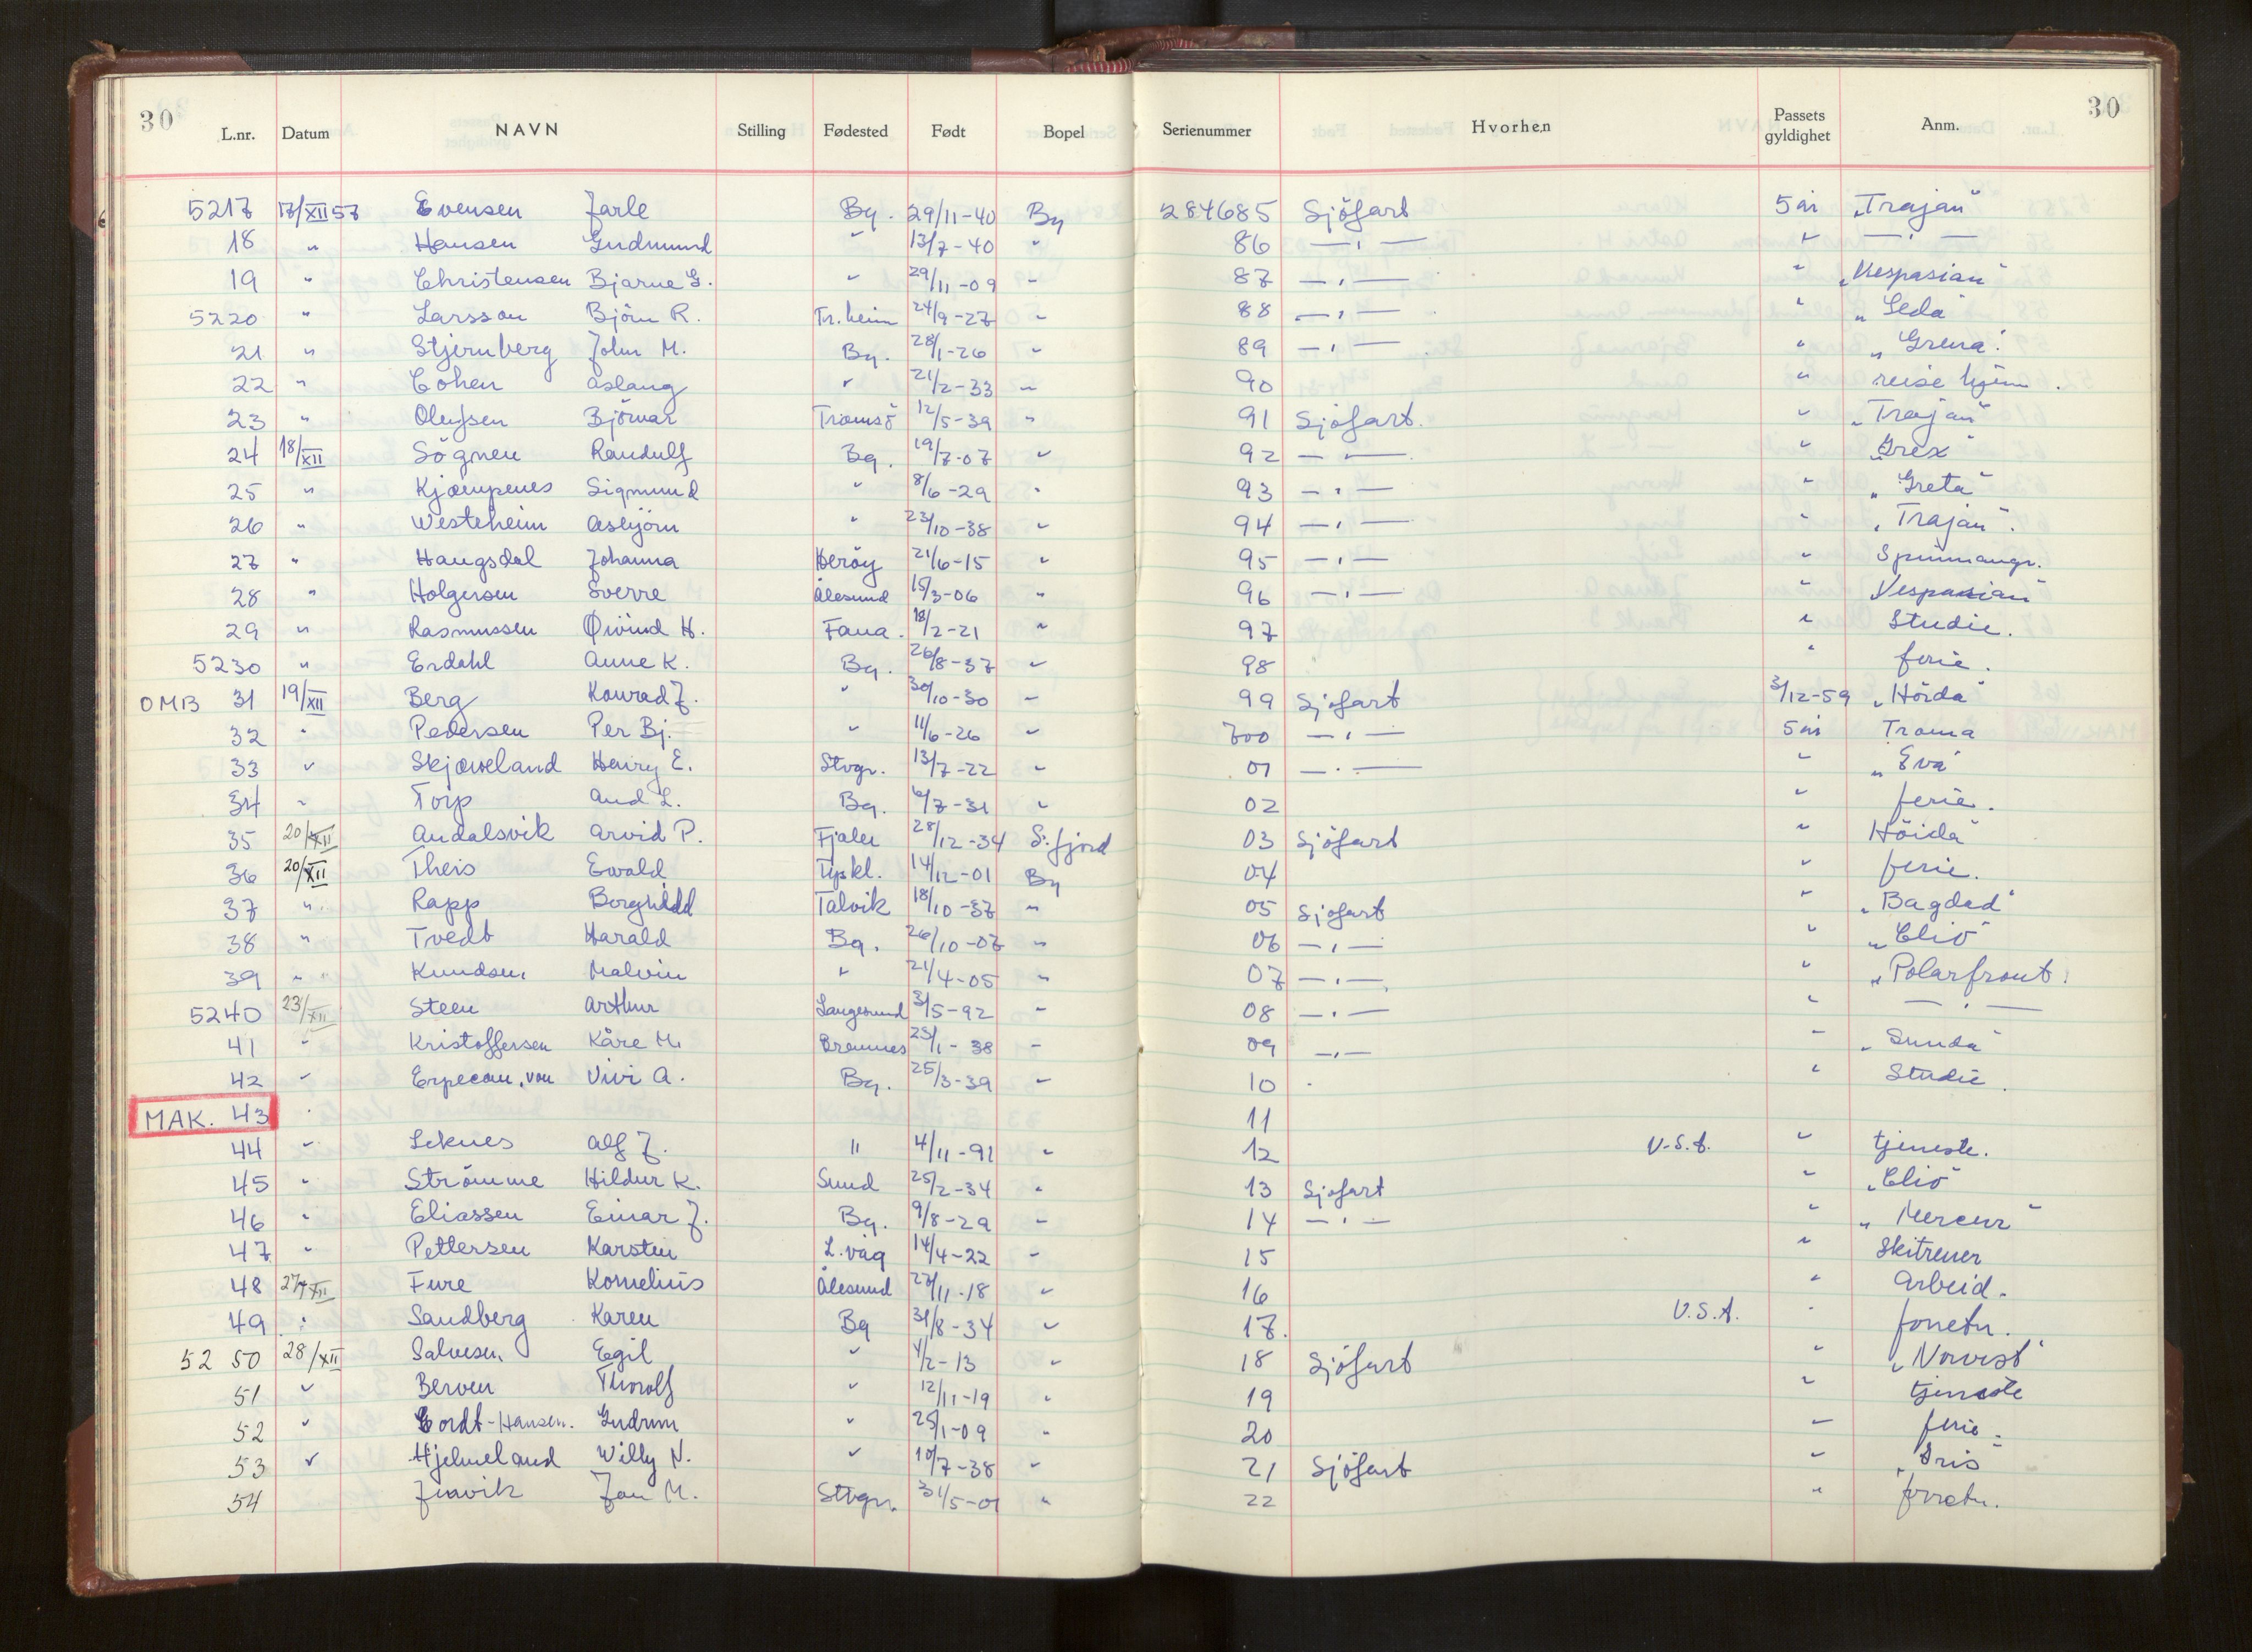 30 30
L.nr. Datum NAVN Stilling Fødested Født Bopel Serienummer Hvorhen Passets gyldighet Anm.
5217 17/XII 57 Evensen Jarle Bg. 29/11-40 Bg 284685 Sjöfart 5 år „Trajan"
18 " Hansen Gudmund " 13/7-40 " 86 —"— " —"—
19 " Christensen Bjarne G. " 29/11-09 " 87 —"— " „Vespasian"
5220 " Larsson Björn R. Tr.heim 24/9-27 " 88 —"— " „Leda"
21 " Stjernberg John M. Bg. 28/1-26 " 89 —"— " „Grena".
22 " Cohen Aslaug " 21/2-33 " 90 " reise hjem.
23 " Olufsen Björnar Tromsö 12/5-39 " 91 Sjöfart. " „Trajan"
24 18/XII Sögnen Randulf Bg. 19/7-07 " 92 —"— " „Grex"
25 " Kjæmpenes Sigmund " 8/6-29 " 93 —"— " „Greta"
26 " Westeheim Asbjörn " 23/10-38 " 94 —"— " „Trajan".
27 " Haugsdal Johanna Heröy 21/6-15 " 95 —"— " Spinnangr.
28 " Holgersen Sverre Ålesund 15/3-06 " 96 —"— " Vespasian"
29 " Rasmussen Øivind H. Fana. 18/2-21 " 97 " Studie.
5230 " Erdahl Anne K. Bg. 26/8-37 " 98 " ferie.
OMB 31 19/XII Berg Konrad J. " 30/10-30 " 99 Sjöfart 3/12-59 „Hörda"
32 " Pedersen Per Bj. " 11/6-26 " 700 —"— 5 år Troma
33 " Skjæveland Henry E. Stvgr. 13/7-22 " 01 —"— " „Eva"
34 " Torp Aud L. Bg. /7-31 " 02 " ferie.
35 20/XII Andalsvik Arvid P. Fjaler 28/12-34 S.fjord 03 Sjöfart " Höida"
36 20/XII Theis Ewald Tyskl. 14/12-01 Bg 04 " ferie.
37 " Rapp Borghild Talvik 18/10-37 " 05 Sjöfart " „Bagdad"
38 " Tvedt Harald Bg. 26/10-07 " 06 —"— " „Clio"
39 " Knudsen Malvin " 21/4-05 " 07 —"— " „Polarfront.
5240 23/XII Steen Arthur Langesund 3/5-92 " 08 —"— " —"—
41 " Kristoffersen Kåre M. Bremnes 23/1-38 " 09 —"— " „Sunda"
42 " Erpecom, von Vivi A. Bg. 25/3-39 " 10 " Studie.
MAK. 43 " 11
44 " Leknes Alf J. " 4/11-91 " 12 U.S.A. " tjeneste.
45 " Strömme Hildur K. Sund 25/2-34 " 13 Sjöfart " „Clio"
46 " Eliassen Einar J. Bg. 9/8-29 " 14 —"— " „Mercur"
47 " Pettersen Karsten L.våg 14/4-22 " 15 " Skitrener
48 27/XII Fure Kornelius Ålesund 27/11-18 " 16 " Arbeid.
49 " Sandberg Karen Bg 31/8-34 " 17. U.S.A. " forretn.
5250 28/XII Salvesen Egil " /2-13 " 18 Sjöfart " „Norvest"
51 " Berven Thorolf " 12/11-19 " 19 " tjeneste
52 " Cordt-Hansen. Gudrun " 25/1-09 " 20 " ferie.
53 " Hjelmeland Willy N. " 10/7-38 " 21 Sjöfart " „Iris"
54 Juavik Jan M. Stvgr. 31/5-01 " 22 " forretn.